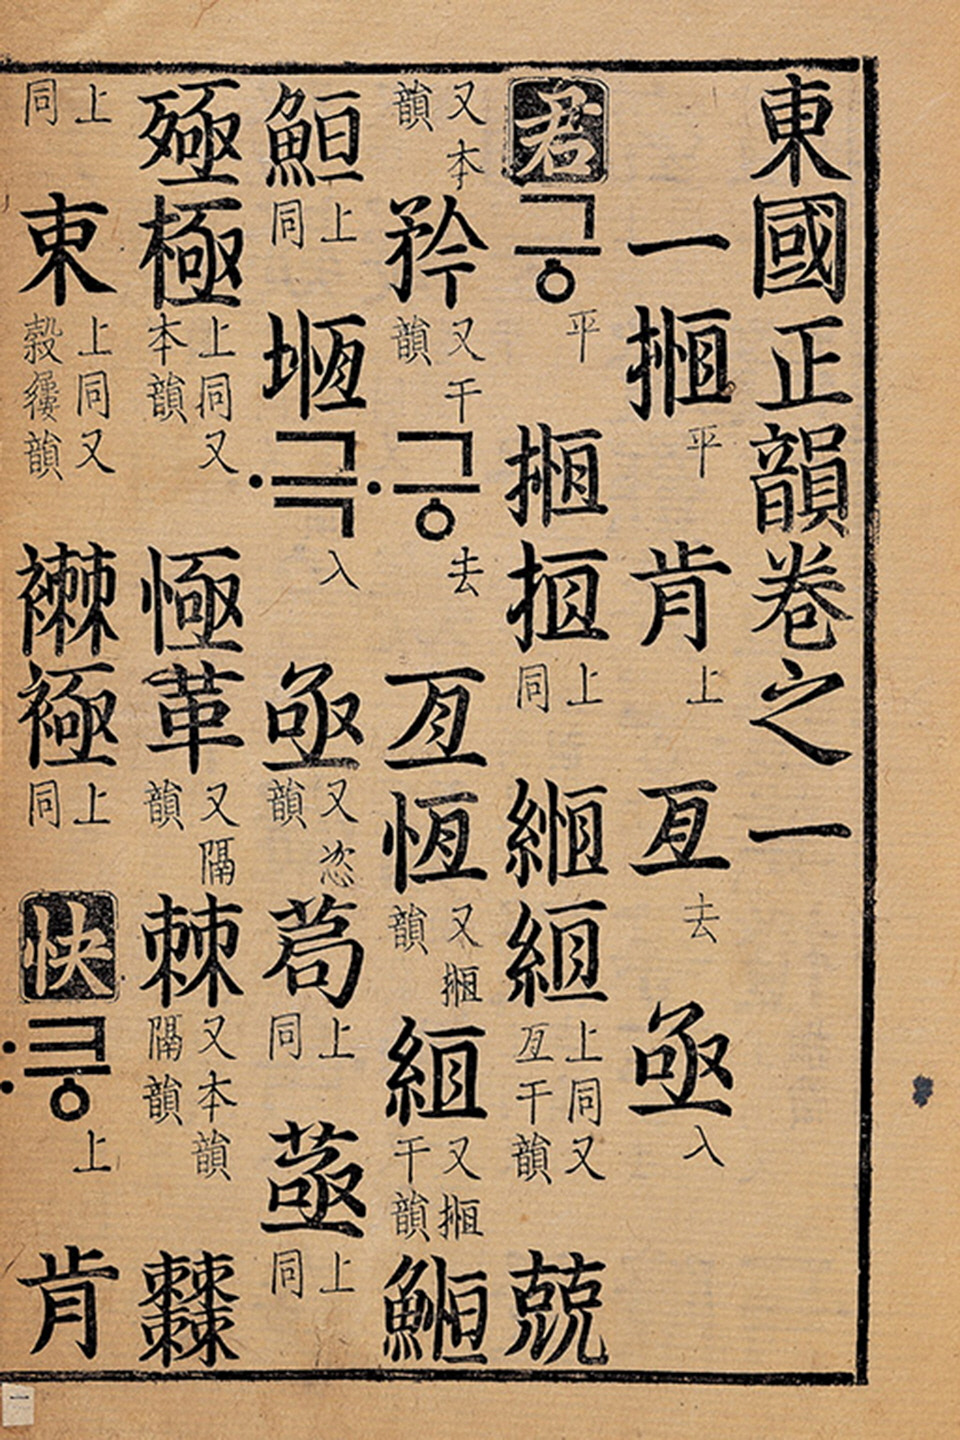 東國正韻卷之一
一 揯平 肯上 亙去 亟入
君 긍平 揯 拒上同 縆 絙上同又亙干韻 兢
又本韻 矜又干韻 ·긍去 亙 恆又揯韻 絙又揯干韻 䱭
䱇上同 堩 ·극入 亟又恣韻 茍上同 䓧上同
殛 極上同又本韻 悈 革又隔韻 棘又本韻隔韻
上同 朿上同又穀韻 襋 上同 快 :킁上 肯